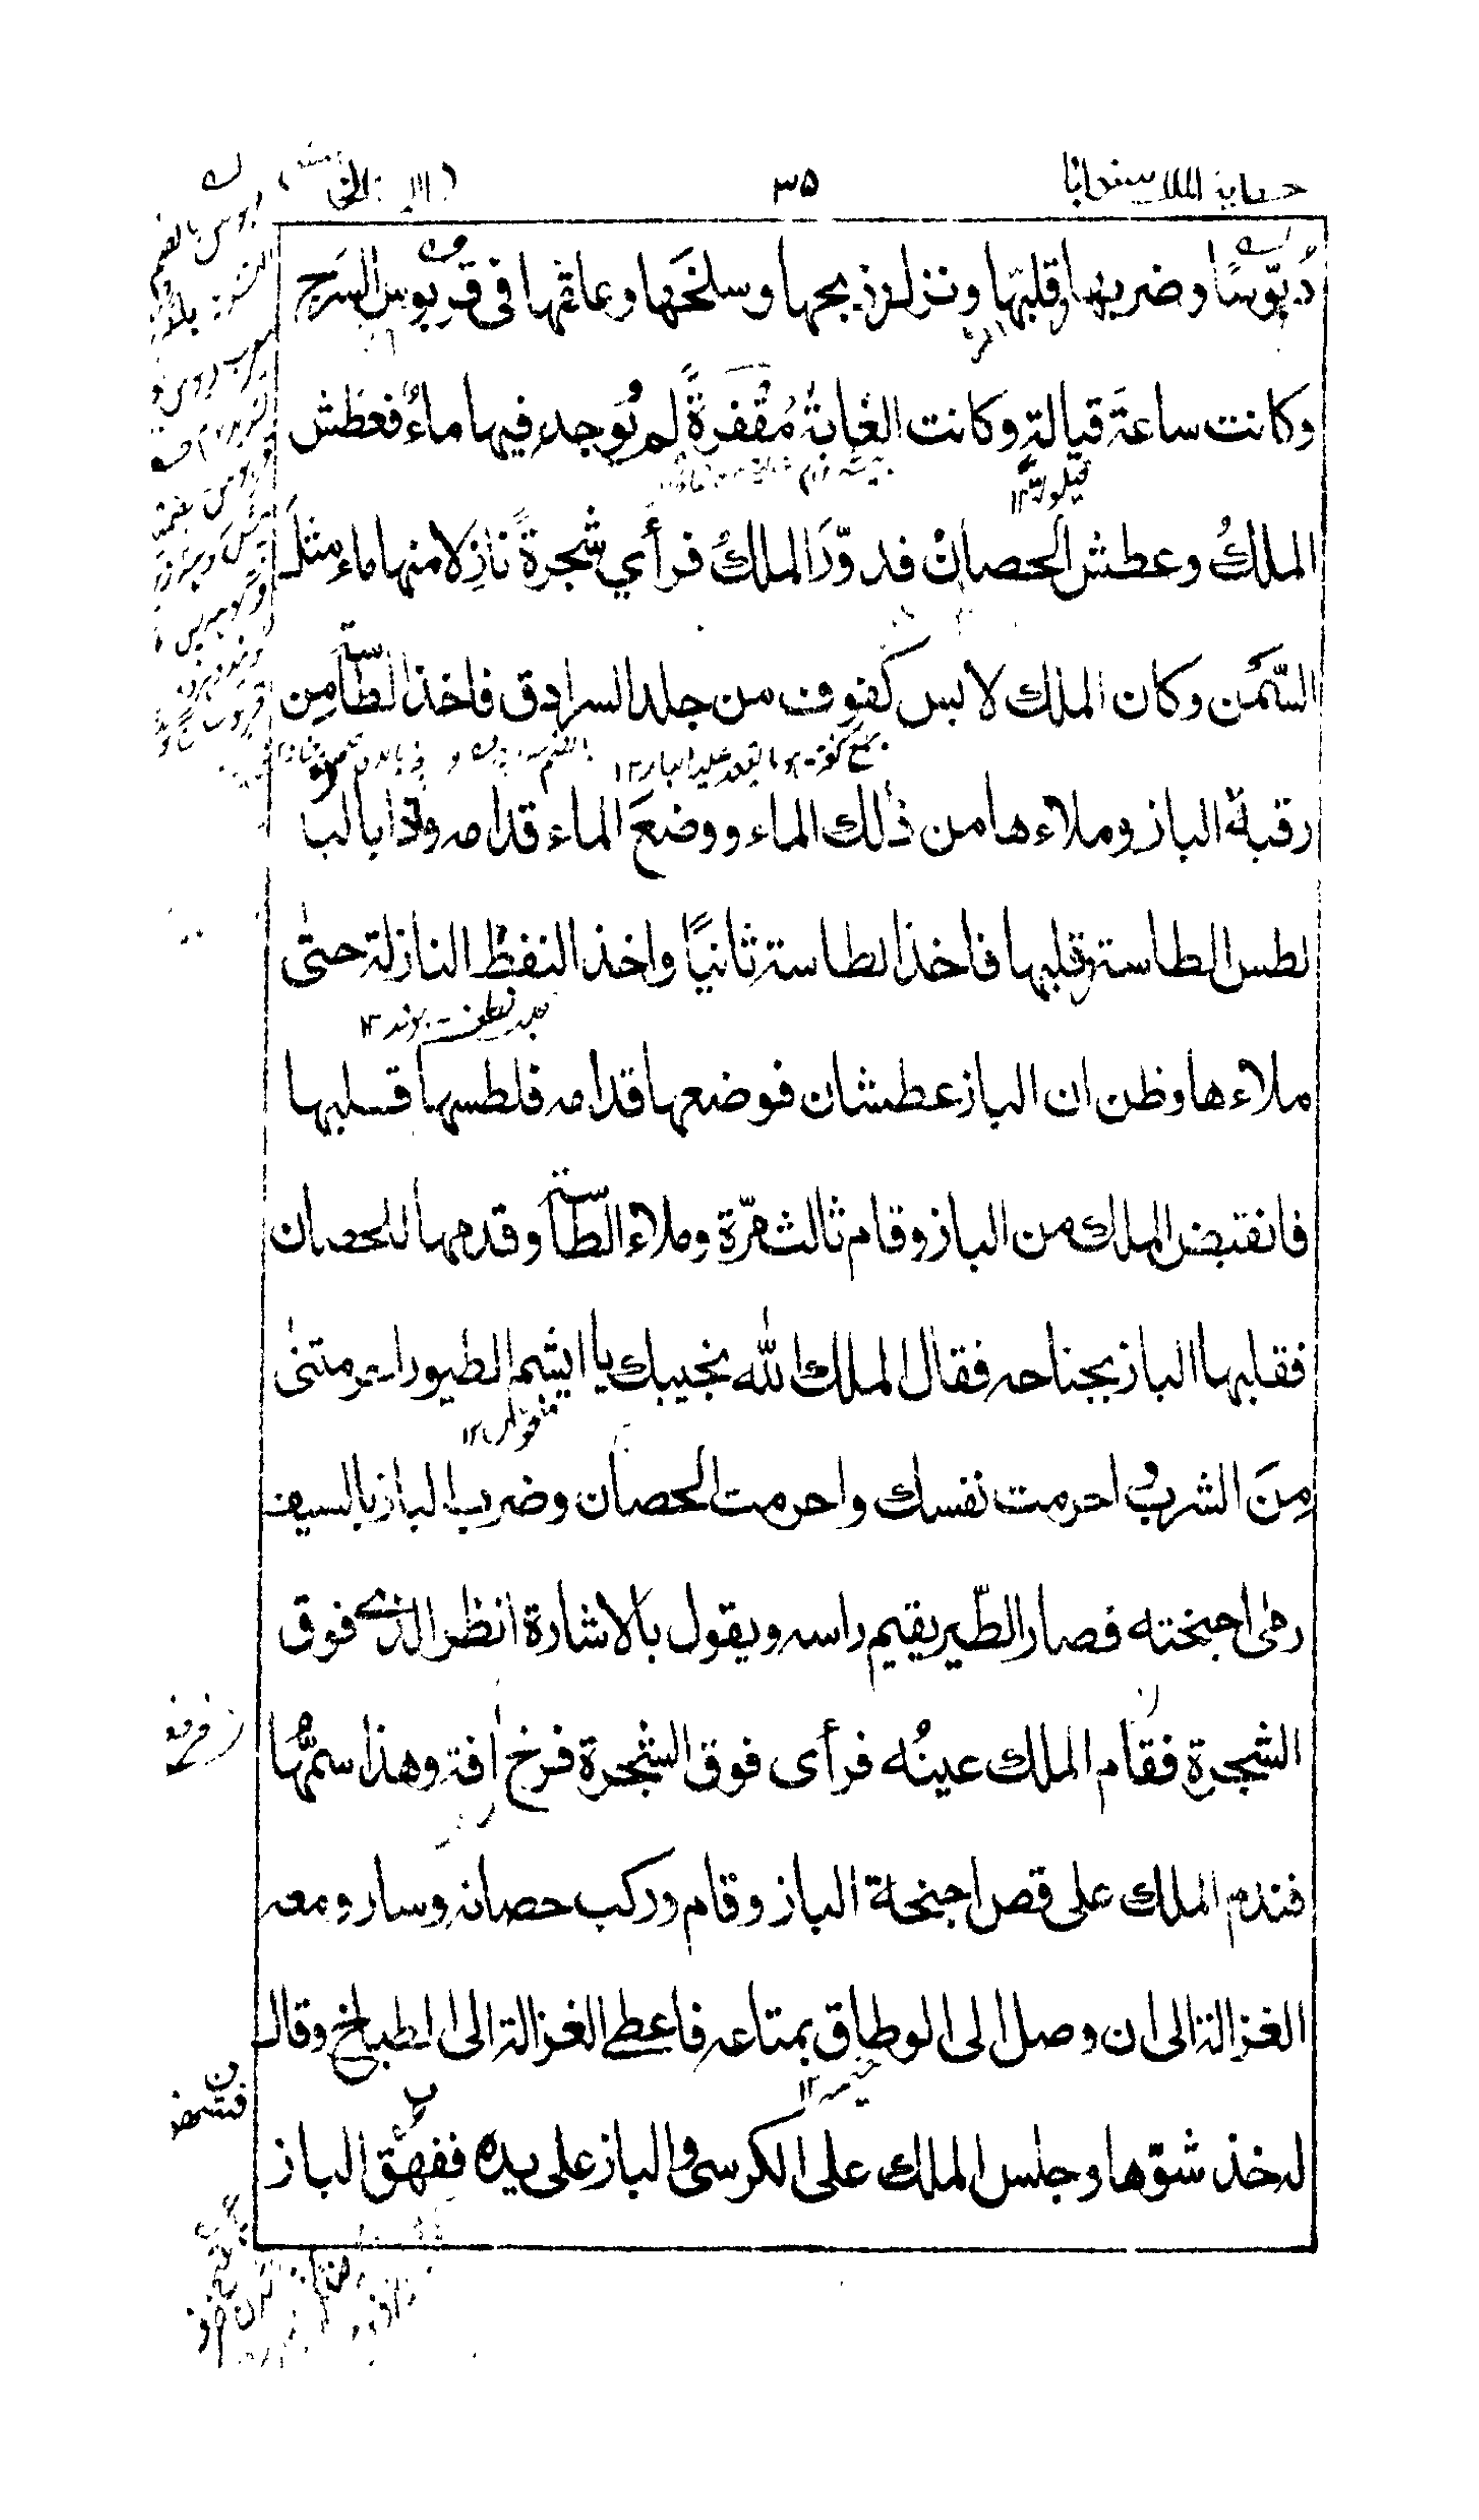 ٣٥
دبّوسًا وضربها قلبّها ونزل ذبحها وسلخَها وعلّقها فى قربوس السَرج
وكانت ساعةَ قيالةٍ وكانت الغابةُ مُقفرةً لم يُوجد فيها ماءٌ فعطش
الملكُ وعطش الحصانُ فدوّرَ الملكُ فرأي شجرةً نازِلا منها ماء مثلَ
السّمن وكان الملك لابس كفوف من جلد السرادق فاخذ الطّاسة مِن
رقبة الباز وملاءها من ذٰلك الماء ووضعَ الماء قدامه واذا بالباز
لطس الطاسة قلبها فاخذ الطاسة ثانيًا واخذ النفظ النازلة حتٰى
ملاءها وظن ان الباز عطشان فوضعها قدامه فلطسها قلبها
فانقبض الملك من الباز وقام ثالث مرّة وملاء الطّاسة وقدمها للحصان
فقلبها الباز بجناحه فقال الملك الله يخيبك يا ايشم الطيور احرمتنى
مِنَ الشرب و احرمت نفسك واحرمت الحصان وضرب الباز بالسيف
رمى اجنحته فصار الطّير يقيم راسه ويقول بالاشارة انظر الذى فوق
الشجرة فقام الملك عينُه فرأى فوق الشجرة فرخ افة وهذا سمُّها
فندم الملك على قص اجنحة الباز وقام وركب حصانه وسار ومعه
الغزالة الى ان وصل الى الوطاق بمتاعه فاعطى الغزالة الى الطباخ وقال
له خذ شوّها وجلس الملك على الكرسى والباز على يده ففهق الباز